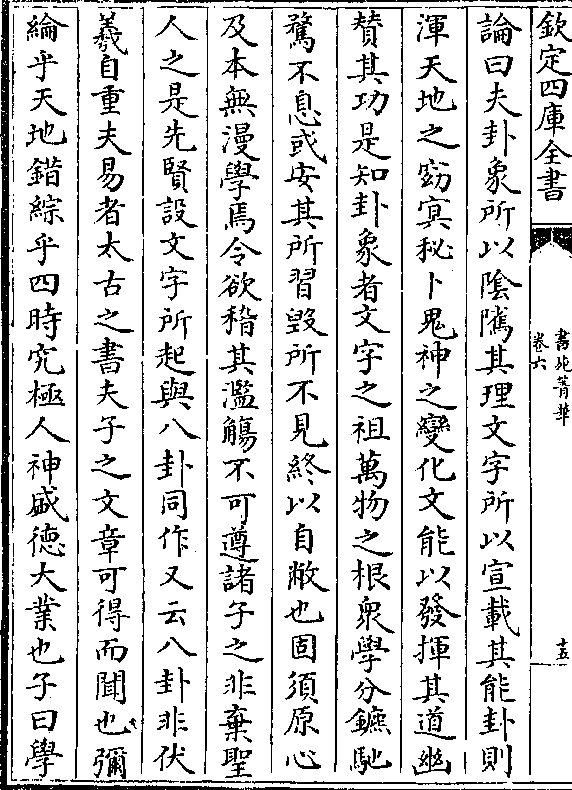 欽定四庫全書
書苑菁華
卷六
十五
論曰夫卦象所以隂隲其理文字所以宣載其能卦則
渾天地之窈㝠秘卜鬼神之變化文能以發揮其道幽
賛其功是知卦象者文字之祖萬物之根衆學分鑣馳
騖不息或安其所習毀所不見終以自敝也固須原心
及本無漫學焉令欲稽其濫觴不可遵諸子之非棄聖
人之是先賢設文字所起與八卦同作又云八卦非伏
羲自重夫易者太古之書夫子之文章可得而聞也彌
綸乎天地錯綜乎四時究極人神盛徳大業也子曰學